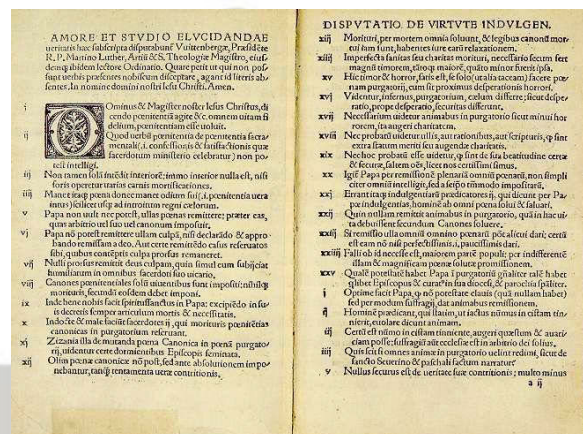 AMORE ET STVDIO ELVCIDANDAE
ueritatis hæc subscripta disputabunt Vuittenbergæ, Præsidete
R. P. Martino Luther, Artiũ & S. Theologiæ Magistro, eius-
dem ibidem lectore Ordinatio. Quare petit ut qui non pos-
sunt uerbis præsentes nobiscum disceptare, agant id literis ab-
sentes. In nomine domini nostri Iesu Christi. Amen.
i Dominus & Magister noster Iesus Christus, di-
cendo pœnitentiã agite &c. omnem uitam fi
delium, pœnitentiam esse uoluit.
ij Quod uerbũ pœnitentiæ de pœnitentia sacra-
mentali (.i. confessionis & satisfactionis quæ
sacerdotum ministerio celebratur) non po-
test intelligi.
iij Non tamen solã intẽdit interiorẽ: immo interior nulla est, nisi
foris operetur uarias carnis mortificationes.
iiij Manet itaq; pœna donec manet odium sui (.i. pœnitentia uera
intus) scilicet usq; ad introitum regni cælorum.
v Papa non uult nec potest, ullas pœnas remittere: præter eas,
quas arbitrio uel suo uel canonum imposuit.
vj Papa nõ potest remittere ullam culpã, nisi declarãdo & appro-
bando remissam a deo. Aut certe remittẽdo casus reseruatos
sibi, quibus contẽptis culpa prorsus remaneret.
vij Nulli prorsus remittit deus culpam, quin simul eum subijciat
humiliatum in omnibus sacerdoti suo uicario.
viij Canones pœnitentiales solũ uiuentibus sunt impositi: nihilq;
morituris, secundũ eosdem debet imponi.
ix Inde bene nobis facit spiritussanctus in Papa: excipiẽdo in su-
is decretis semper articulum mortis & necessitatis.
x Indocte & male faciũt sacerdotes ij, qui morituris pœnitẽtias
canonicas in purgatorium reseruant.
xj Zizania illa de mutanda pœna Canonica in pœnã purgato-
rij, uidentur certe dormientibus Episcopis seminata.
xij Olim pœnæ canonicæ nõ post, sed ante absolutionem impo-
nebantur, tanq̃ tentamenta ueræ contritionis.
DISPVTATIO DE VIRTVTE INDVLGEN.
xiij Morituri, per mortem omnia soluunt, & legibus canonũ mor-
tui iam sunt, habentes iure earũ relaxationem.
xiiij Imperfecta sanitas seu charitas morituri, necessario secum fert
magnũ timorem, tãtoq; maiorẽ, quãto minor fuerit ipsa.
xv Hic timor & horror, satis est, se solo (ut alia taceam) facere pœ-
nam purgatorij, cum sit proximus desperationis horrori.
xvj Videntur, infernus, purgatorium, cælum differre: sicut despe-
ratio, prope desperatio, securitas differunt.
xvij Necessarium uidetur animabus in purgatorio sicut minui hor-
rorem, ita augeri charitatem.
xviij Nec probatũ uidetur ullis, aut rationibus, aut scripturis, q̃ sint
extra statum meriti seu augendæ charitatis.
xix Nec hoc probatũ esse uidetur, q̃ sint de sua beatitudine certæ
& securæ, saltem oẽs, licet nos certissimi simus.
xx Igit̃ Papa per remissionẽ plenariã omniũ pœnarũ, non simpli
citer omniũ intelligit, sed a seipso tm̃modo impositarũ.
xxj Errant itaq; indulgentiarũ prædicatores ij, qui dicunt per Pa-
pæ indulgentias, hominẽ ab omni pœna solui & saluari.
xxij Quin nullam remittit animabus in purgatorio, quã in hac ui-
ta debuissent secundum Canones soluere.
xxiij Si remissio ulla omniũ omnino pœnarũ põt alicui dari; certũ
est eam nõ nisi perfectissimis, .i. paucissimis dari.
xxiiij Falli ob id necesse est, maiorem partẽ populi: per indifferentẽ
illam & magnificam pœnæ solutæ promissionem.
xxv Qualẽ potestatẽ habet Papa ĩ purgatoriũ gñaliter talẽ habet
q̃libet Episcopus & curat̃ in sua diocesi, & parochia sp̃aliter.
i Optime facit Papa, q̃ nõ potestate clauis (quã nullam habet)
sed per modum suffragij, dat animabus remissionem.
ij Hominẽ prædicant, qui statim, ut iactus nũmus in cistam tin-
nierit, euolare dicunt animam.
iij Certũ est nũmo in cistam tinniente, augeri quæstum & auari-
ciam posse; suffragiũ aũt ecclesiæ est in arbitrio dei solius.
iiij Quis scit si omnes animæ in purgatorio uelint redimi, sicut de
sancto Seuerino & paschali factum narratur.
v Nullus securus est de ueritate suæ contritionis; multo minus
a ij